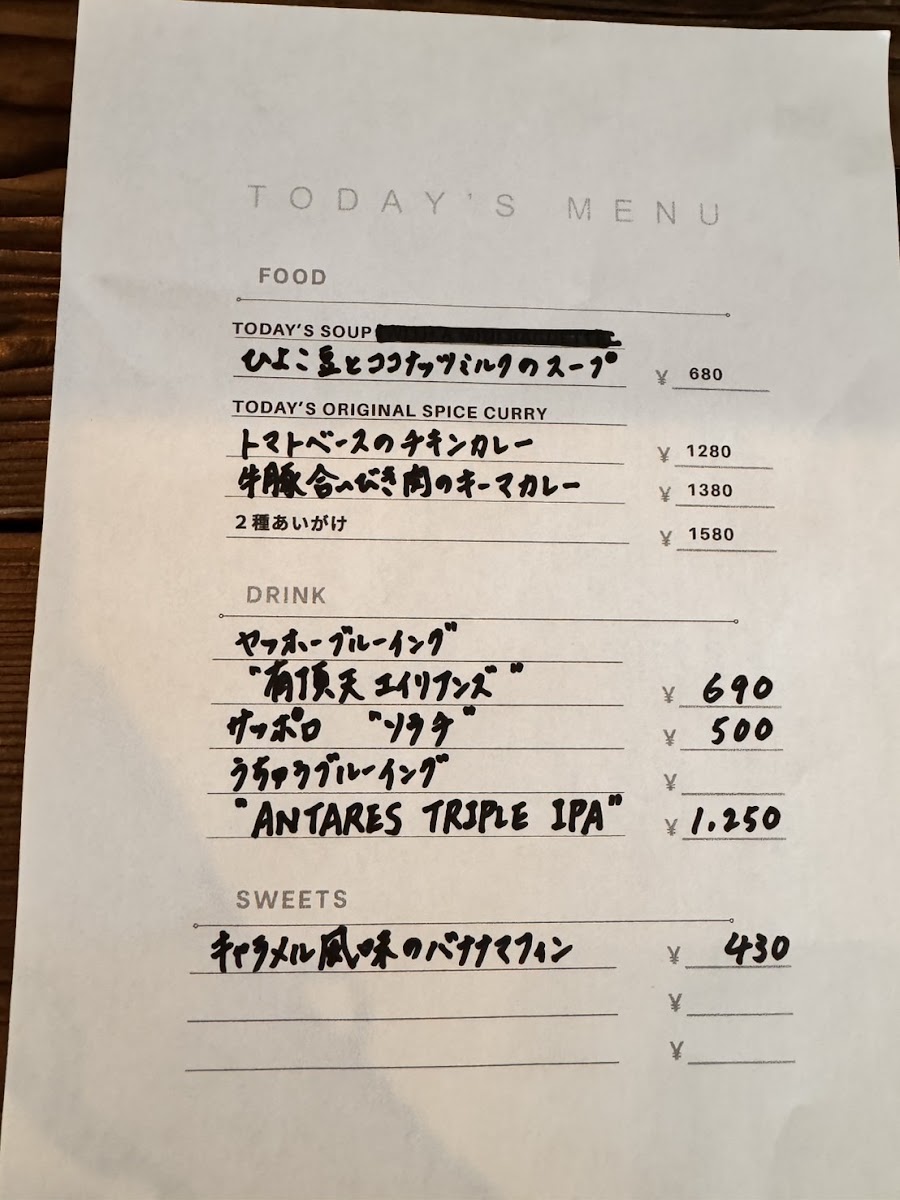 TODAY'S MENU
FOOD
TODAY'S SOUP
ひよこ豆とココナッツミルクのスープ ¥ 680
TODAY'S ORIGINAL SPICE CURRY
トマトベースのチキンカレー ¥ 1280
牛豚合いびき肉のキーマカレー ¥ 1380
2種あいがけ ¥ 1580
DRINK
ヤッホーブルーイング
"有頂天エイリアンズ" ¥ 690
サッポロ "ソラチ" ¥ 500
うちゅうブルーイング ¥
"ANTARES TRIPLE IPA" ¥ 1.250
SWEETS
キャラメル風味のバナナマフィン ¥ 430
¥
¥